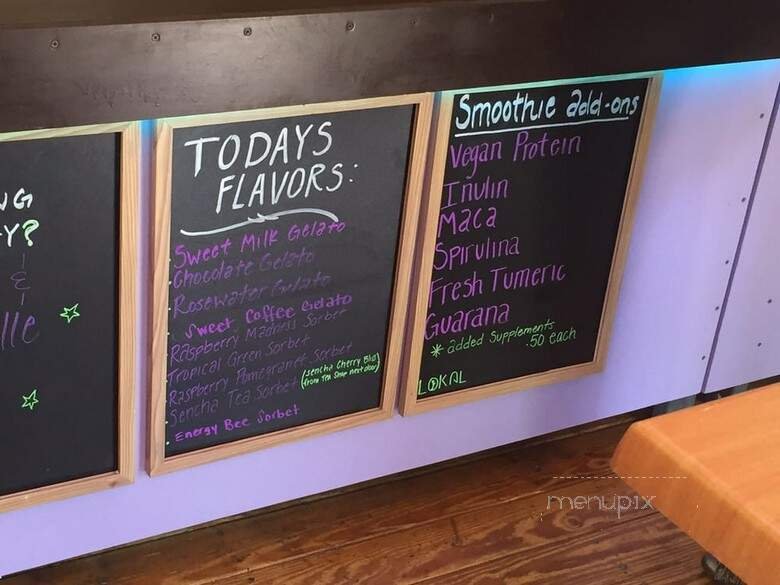 NG
Y?
&
lle
TODAYS
FLAVORS:
Sweet Milk Gelato
Chocolate Gelato
Rosewater Gelato
Sweet Coffee Gelato
Raspberry Madness Sorbet
Tropical Green Sorbet
Raspberry Pomegranet Sorbet
Sencha Tea Sorbet (sencha Cherry Blos)
(from Tea Shop next door)
Energy Bee Sorbet
Smoothie add-ons
Vegan Protein
Inulin
Maca
Spirulina
Fresh Tumeric
Guarana
* added Supplements
.50 each
LOKAL
menupix